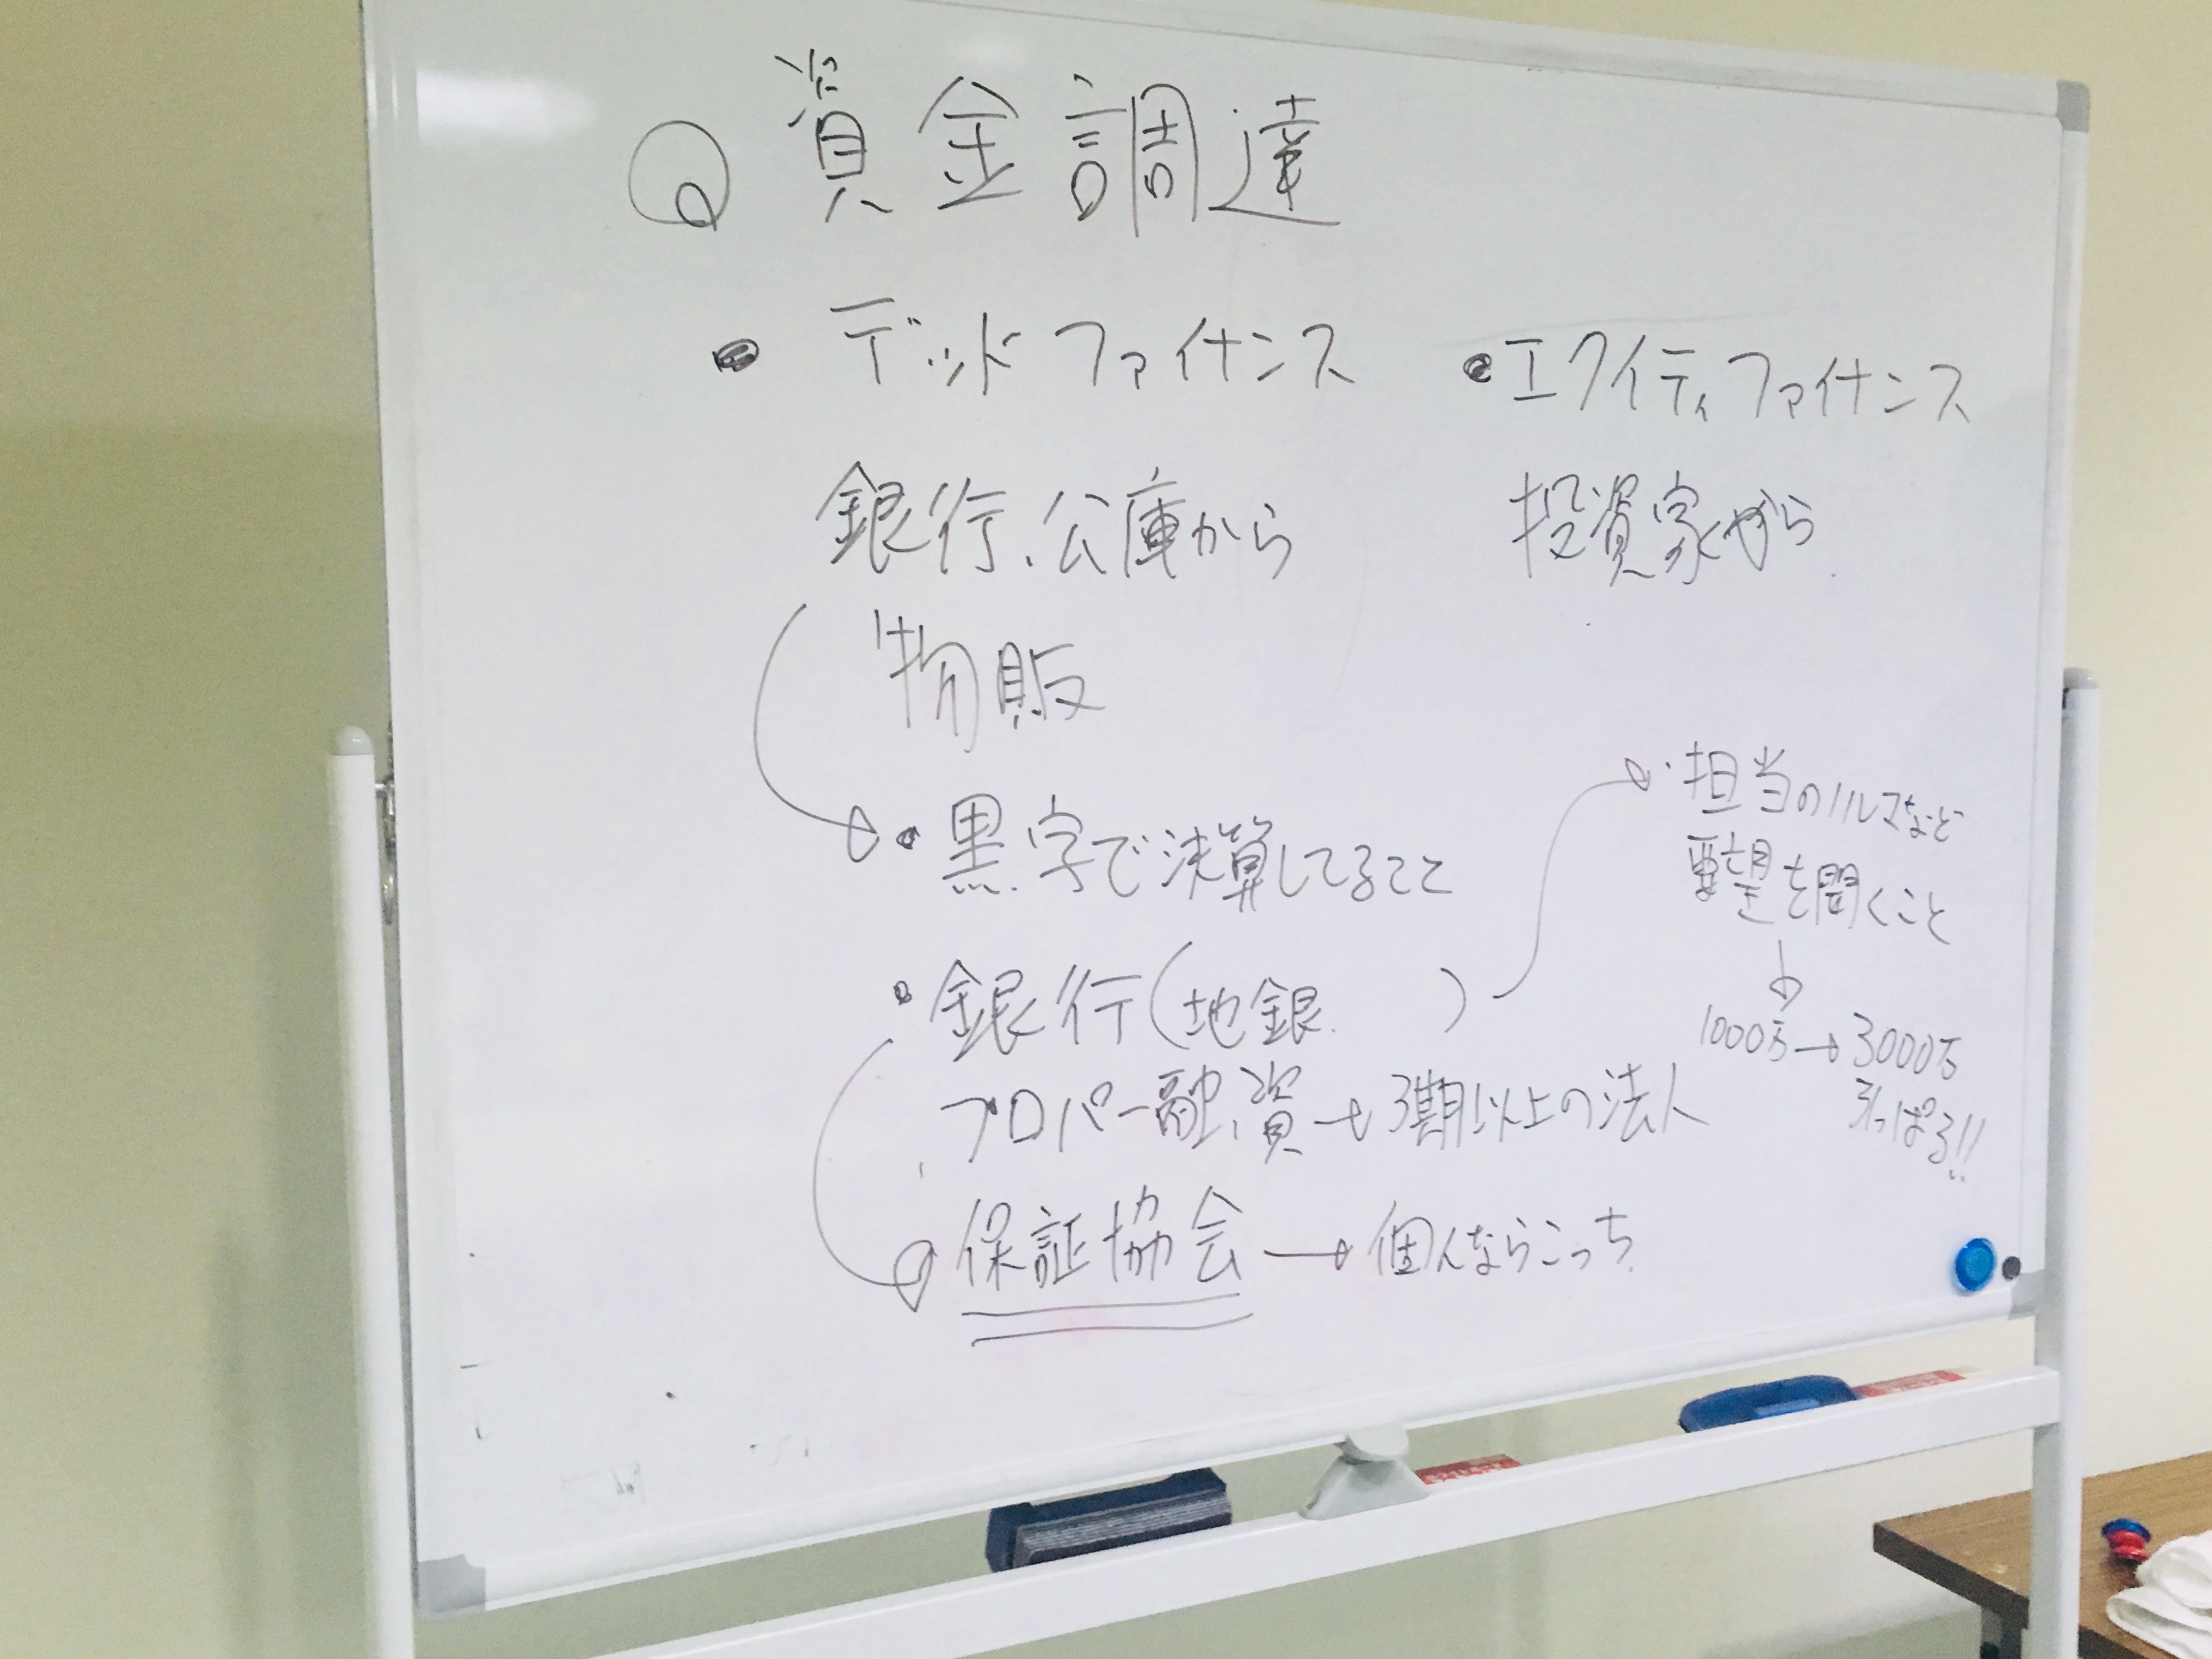 資金調達
・デットファイナンス
銀行、公庫から
物販
・黒字で決算してること
・銀行(地銀 )
プロパー融資→3期以上の法人
保証協会→個人ならこっち
・エクイティファイナンス
投資家から
・担当のノルマなど
要望を聞くこと
1000万→3000万
引っぱる!!